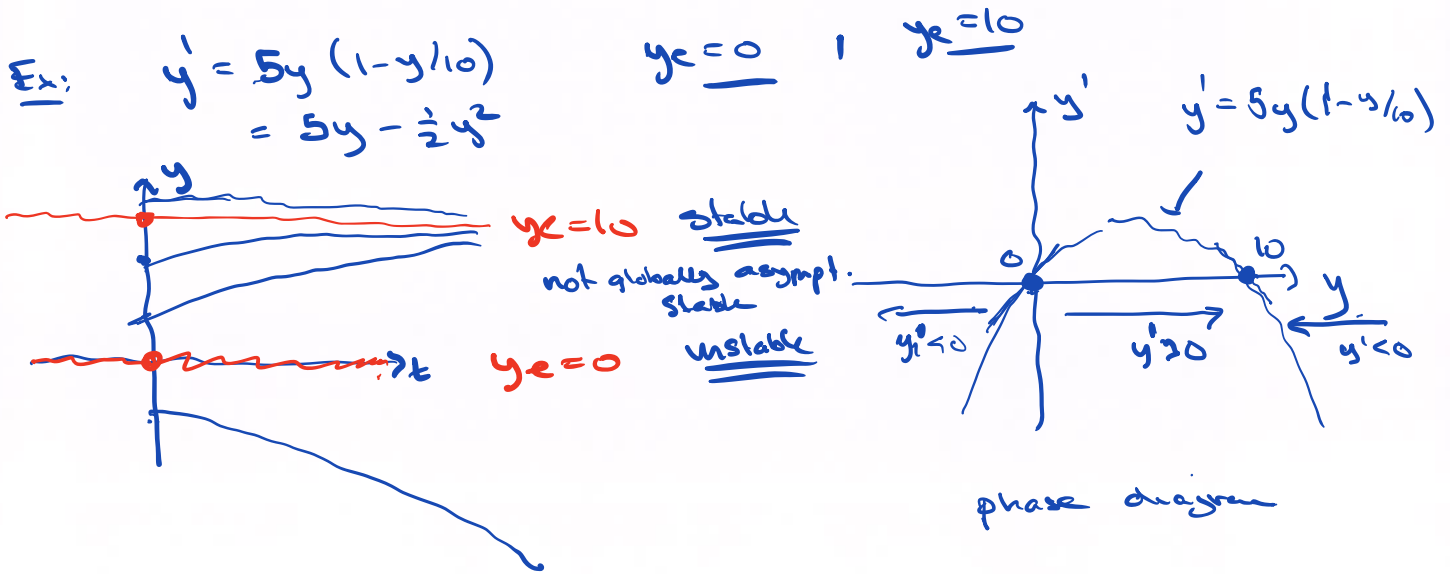 Ex: y' = 5y (1-y/10)
= 5y - ½y²
ye = 0 , ye = 10
y
ye = 10 stable
not globally asympt.
stable
ye = 0 unstable
t
y'
y' = 5y(1-y/10)
0
10
y
y' < 0
y' > 0
y' < 0
phase diagram